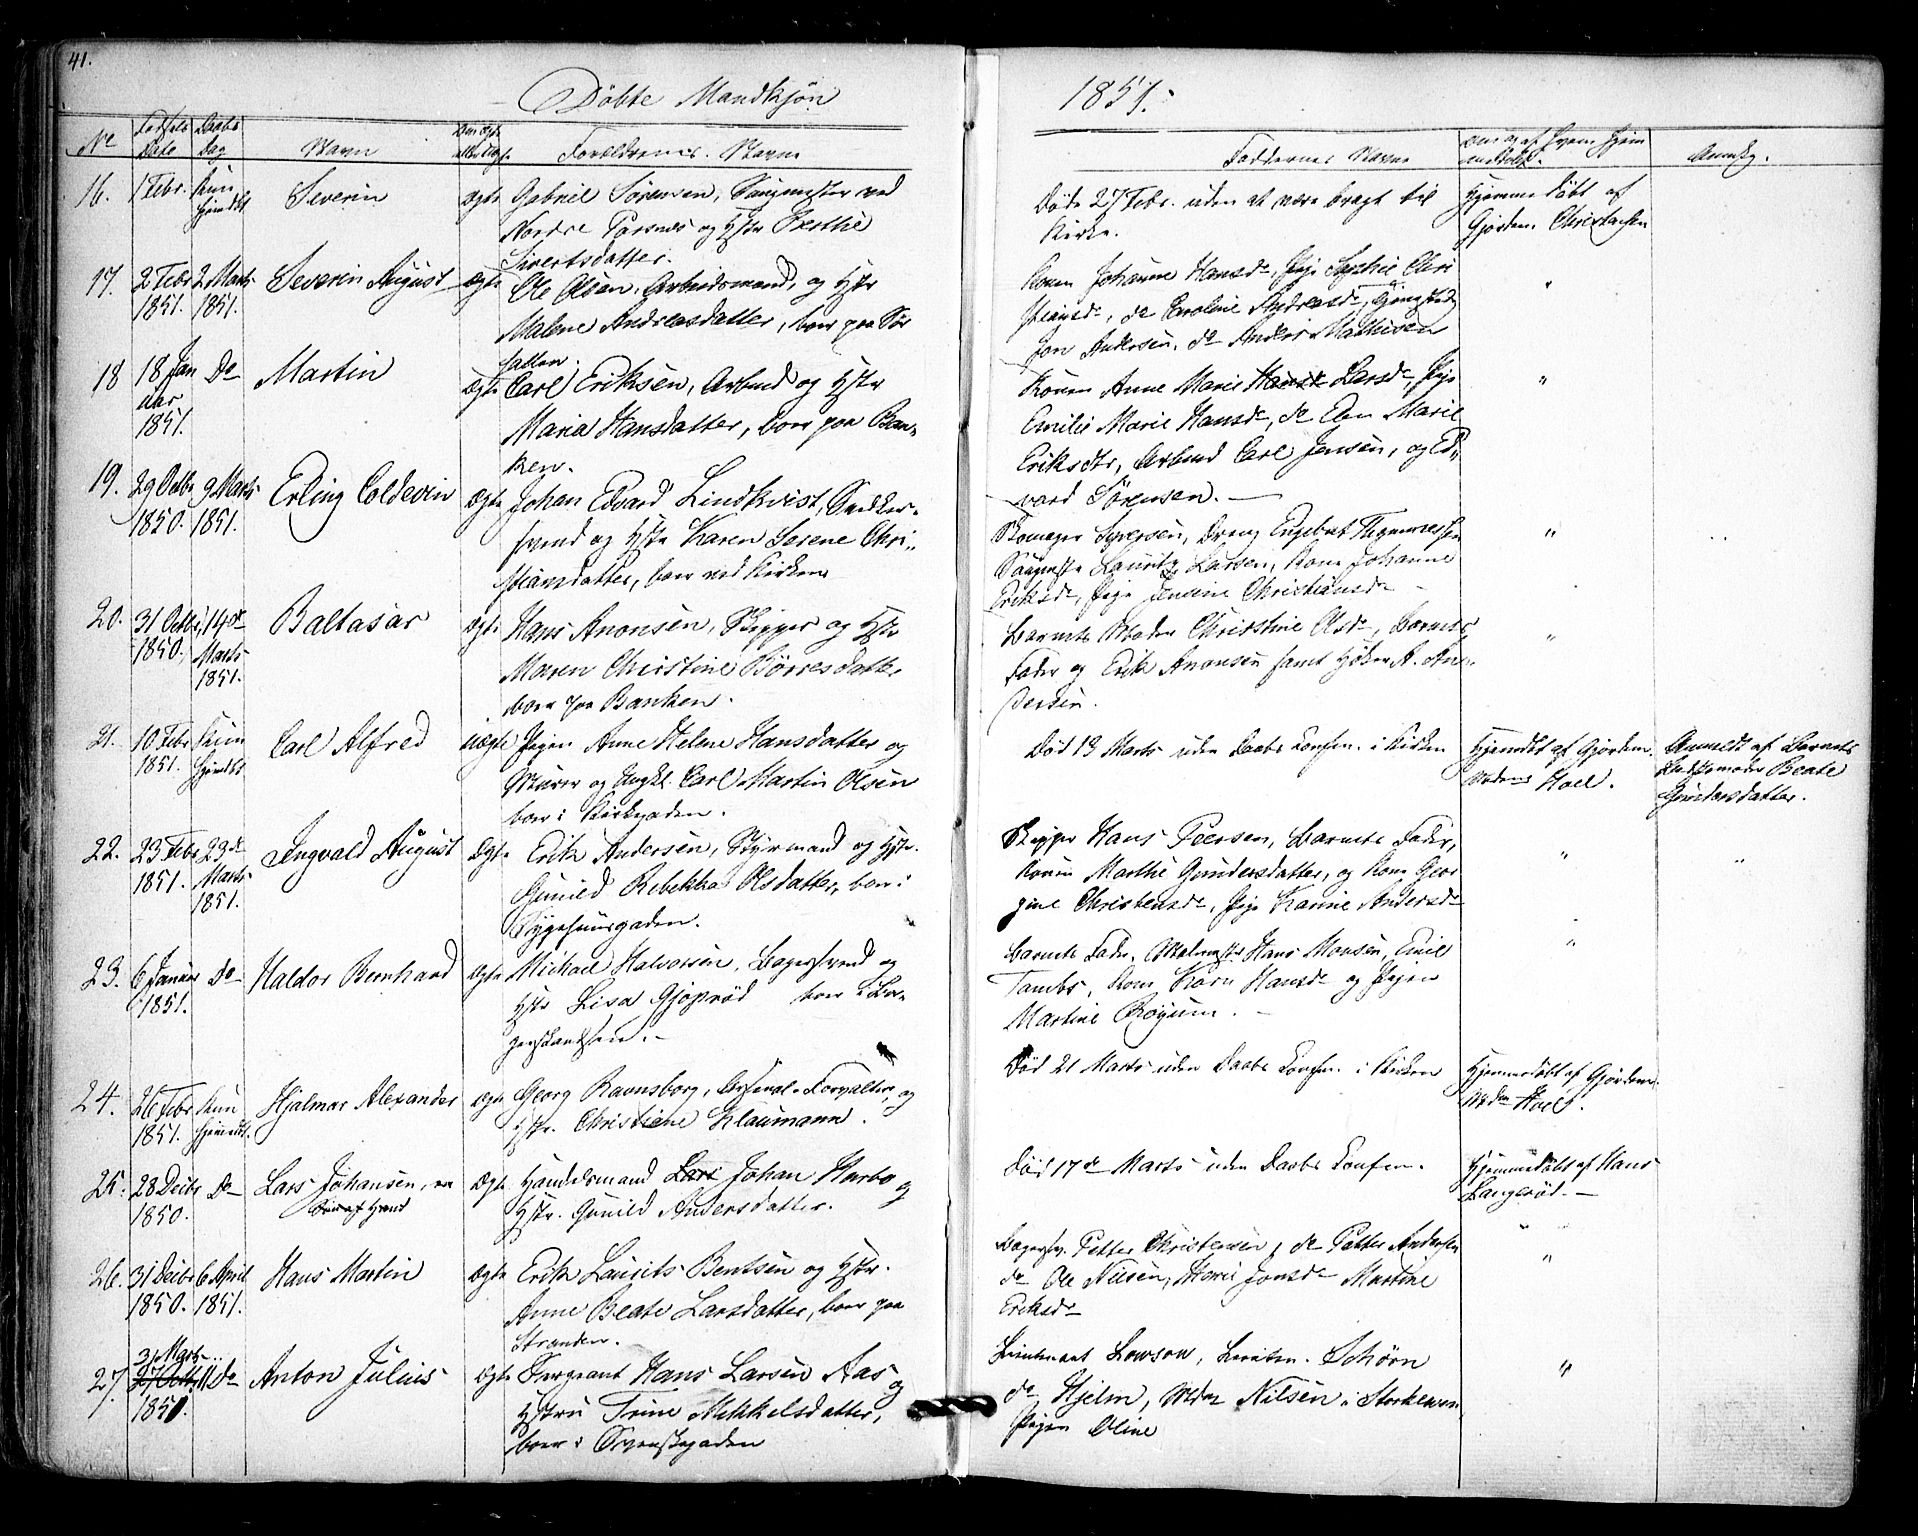 41.
Döbte Mandkjön
1851.
No
Fødsels Dato
Daabs Dag
Navn
Forældrenes Navne
Faddernes Navne
Anmkg.
16.
1 Febr.
Kun hjemdbt
Severin
ægte
Gabriel Sörensen, Saugmester ved
Nordre Torsnes og Hstr Berthe
Sivertsdatter.
Døde 27 Febr. uden at være bragt til
Kirke.
Hjemme døbt af
Gjordem. Christensen
17.
2 Febr
1851.
2 Marts
1851.
Severin August
ægte
Ole Olsen, Arbeidsmand, og Hstr
Malene Andreasdatter, boer paa Sör
hallen.
Konen Johanne Hansdr, Pige Sophie Chri
stiansdr, do Caroline Andreasdr,
Jon Andersen, do Anders Mathisen
"
18
18 Jan
uar
1851.
Do
Martin
ægte
Carl Eriksen, Arbmd og Hstr
Maria Hansdatter, boer paa Ban-
ken.
Konen Anne Marie Hansd Larsdr, Pige
Emilie Marie Hansdr, do Elen Marie
Eriksdtr, Arbmd Carl Jensen, og Ed-
vard Sörensen.
"
19.
29 Octbr
1850.
9 Marts
1851.
Erling Coldevin
Ægte
Johan Edvard Lindkvist, Snedker-
svend og Hstr Karen Serene Chri-
stiansdatter, boer ved Kirken
Syversen, Dreng Engebret
Saugmstr Lauritz Larsen, Kone Johanne
Eriksdr, Pige Jensine Christiansdr
"
20.
31 Octbr
1850.
14de
Marts
1851.
Baltasar
ægte
Hans Anonsen, Skipper og Hstr
Maren Christine Börresdatter
boer paa Banken.
Barnets Moder Christine Olsdr, Barnets
Fader og Erik Anonsen samt Höker A. An-
dersen.
"
21.
10 Febr
1851.
Kun
hjemdbt
Carl Alfred
uægte
Pigen Anne Helene Hansdatter og
Murer og Ungkl. Carl Martin Olsen
boer i Kirkegaden.
Död 13 Marts uden Daabs Confirm. i Kirken
Hjemdbt af Gjordem.
Madam Hoel.
Anmeldt af Barnets
Bedstemoder Beate
Gundersdatter.
22.
23 Febr
1851.
23de
Marts
1851.
Ingvald August
Ægte
Erik Andersen, Styrmand og Hstr.
Gunild Rebekka Olsdatter, boer i
Sygehuusgaden.
Skipper Hans Peersen, Barnets Fader,
Konen Marthe Gundersdatter, og Kone Geor
gine Christensdr, Pige Hanne Andersdr
"
"
23.
6 Januar
1851.
Do
Haldor Bernhard
Ægte
Michael Halvorsen, Bagersvend og
Hstr Lisa Gjöprød boer i Ba-
gerskandsen.
Barnets Fader, Malermstr Hans Monsen, Emil
Tambs, Kone Karn Hansdr og Pigen
Martine Röyum.
"
24.
26 Febr
1851.
Kun
hjemdbt.
Hjalmar Alexander
ægte
Georg Ravnsborg, Arsenal-Forvalter, og
Hstr. Christiane Klaumann.
Död 21 Marts uden Daabs Confirm. i Kirken
Hjemmedöbt af Gjördem.
Madm Hoel.
25.
28 Decbr
1850.
Do
Lars Johansen, en
Sön af Hand
Ægte
Handelsmand Lars Johan Harbo og
Hstr. Gunild Andersdatter.
Död 17de Marts uden Daabs Confirm.
Hjemmedöbt af Hans
Langeröd.
26.
31 Decbr
1850.
6 April
1851.
Hans Martin
Ægte
Erik Laurits Bentsen og Hstr.
Anne Beate Larsdatter, boer paa
Stranden.
Bagersv. Petter Christensen, do Petter Andersen
do Ole Nilsen, Marie Jonsdr Martine
Eriksdr
"
27.
31 Marts
1851.
Do
Anton Julius
Ægte
Sergeant Hans Larsen Aas og
Hstru Trine Mikkelsdatter,
boer i Svenskegaden
Lieutenant Lowsow, Schörn
do Hjelm, Madm Nilsen i Storkeven
Pigen Oline
"